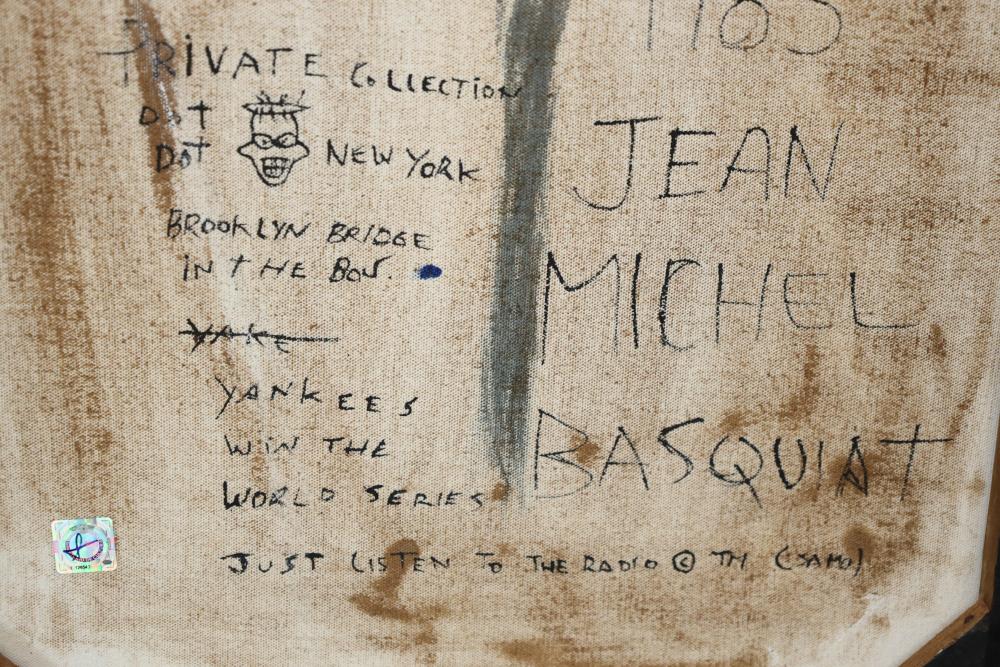 PRIVATE COLLECTION
DOT
DOT NEW YORK
BROOKLYN BRIDGE
IN THE BOX.
YAKE
YANKEES
WIN THE
WORLD SERIES
JUST LISTEN TO THE RADIO © TM (SAMO)
JEAN
MICHEL
BASQUIAT